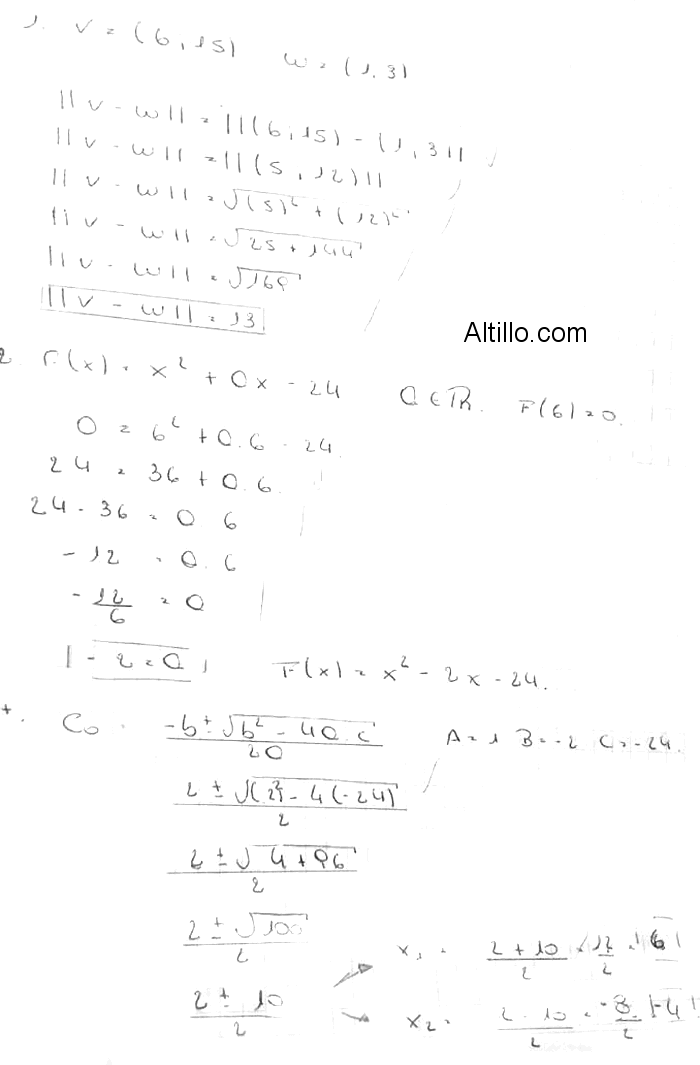 1. v = (6, 15) w = (1, 3)
||v - w|| = ||(6, 15) - (1, 3||
||v - w|| = ||(5, 12)||
||v - w|| = √(5)² + (12)²
||v - w|| = √25 + 144
||v - w|| = √169
||v - w|| = 13
Altillo.com
2 F(x) = x² + ax - 24 a ∈ R. F(6) = 0.
0 = 6² + a.6 - 24
24 = 36 + a.6
24 - 36 = a 6
-12 = a.6
-12/6 = a
-2 = a F(x) = x² - 2x - 24.
C₀ = -b ± √b² - 4a.c / 2a A = 1 B = -2 C = -24.
2 ± √(2² - 4(-24) / 2
2 ± √4 + 96 / 2
2 ± √100 / 2
x₁ = 2 + 10 / 2 = 12/2 = 6
2 ± 10 / 2
x₂ = 2 - 10 / 2 = -8/2 = -4